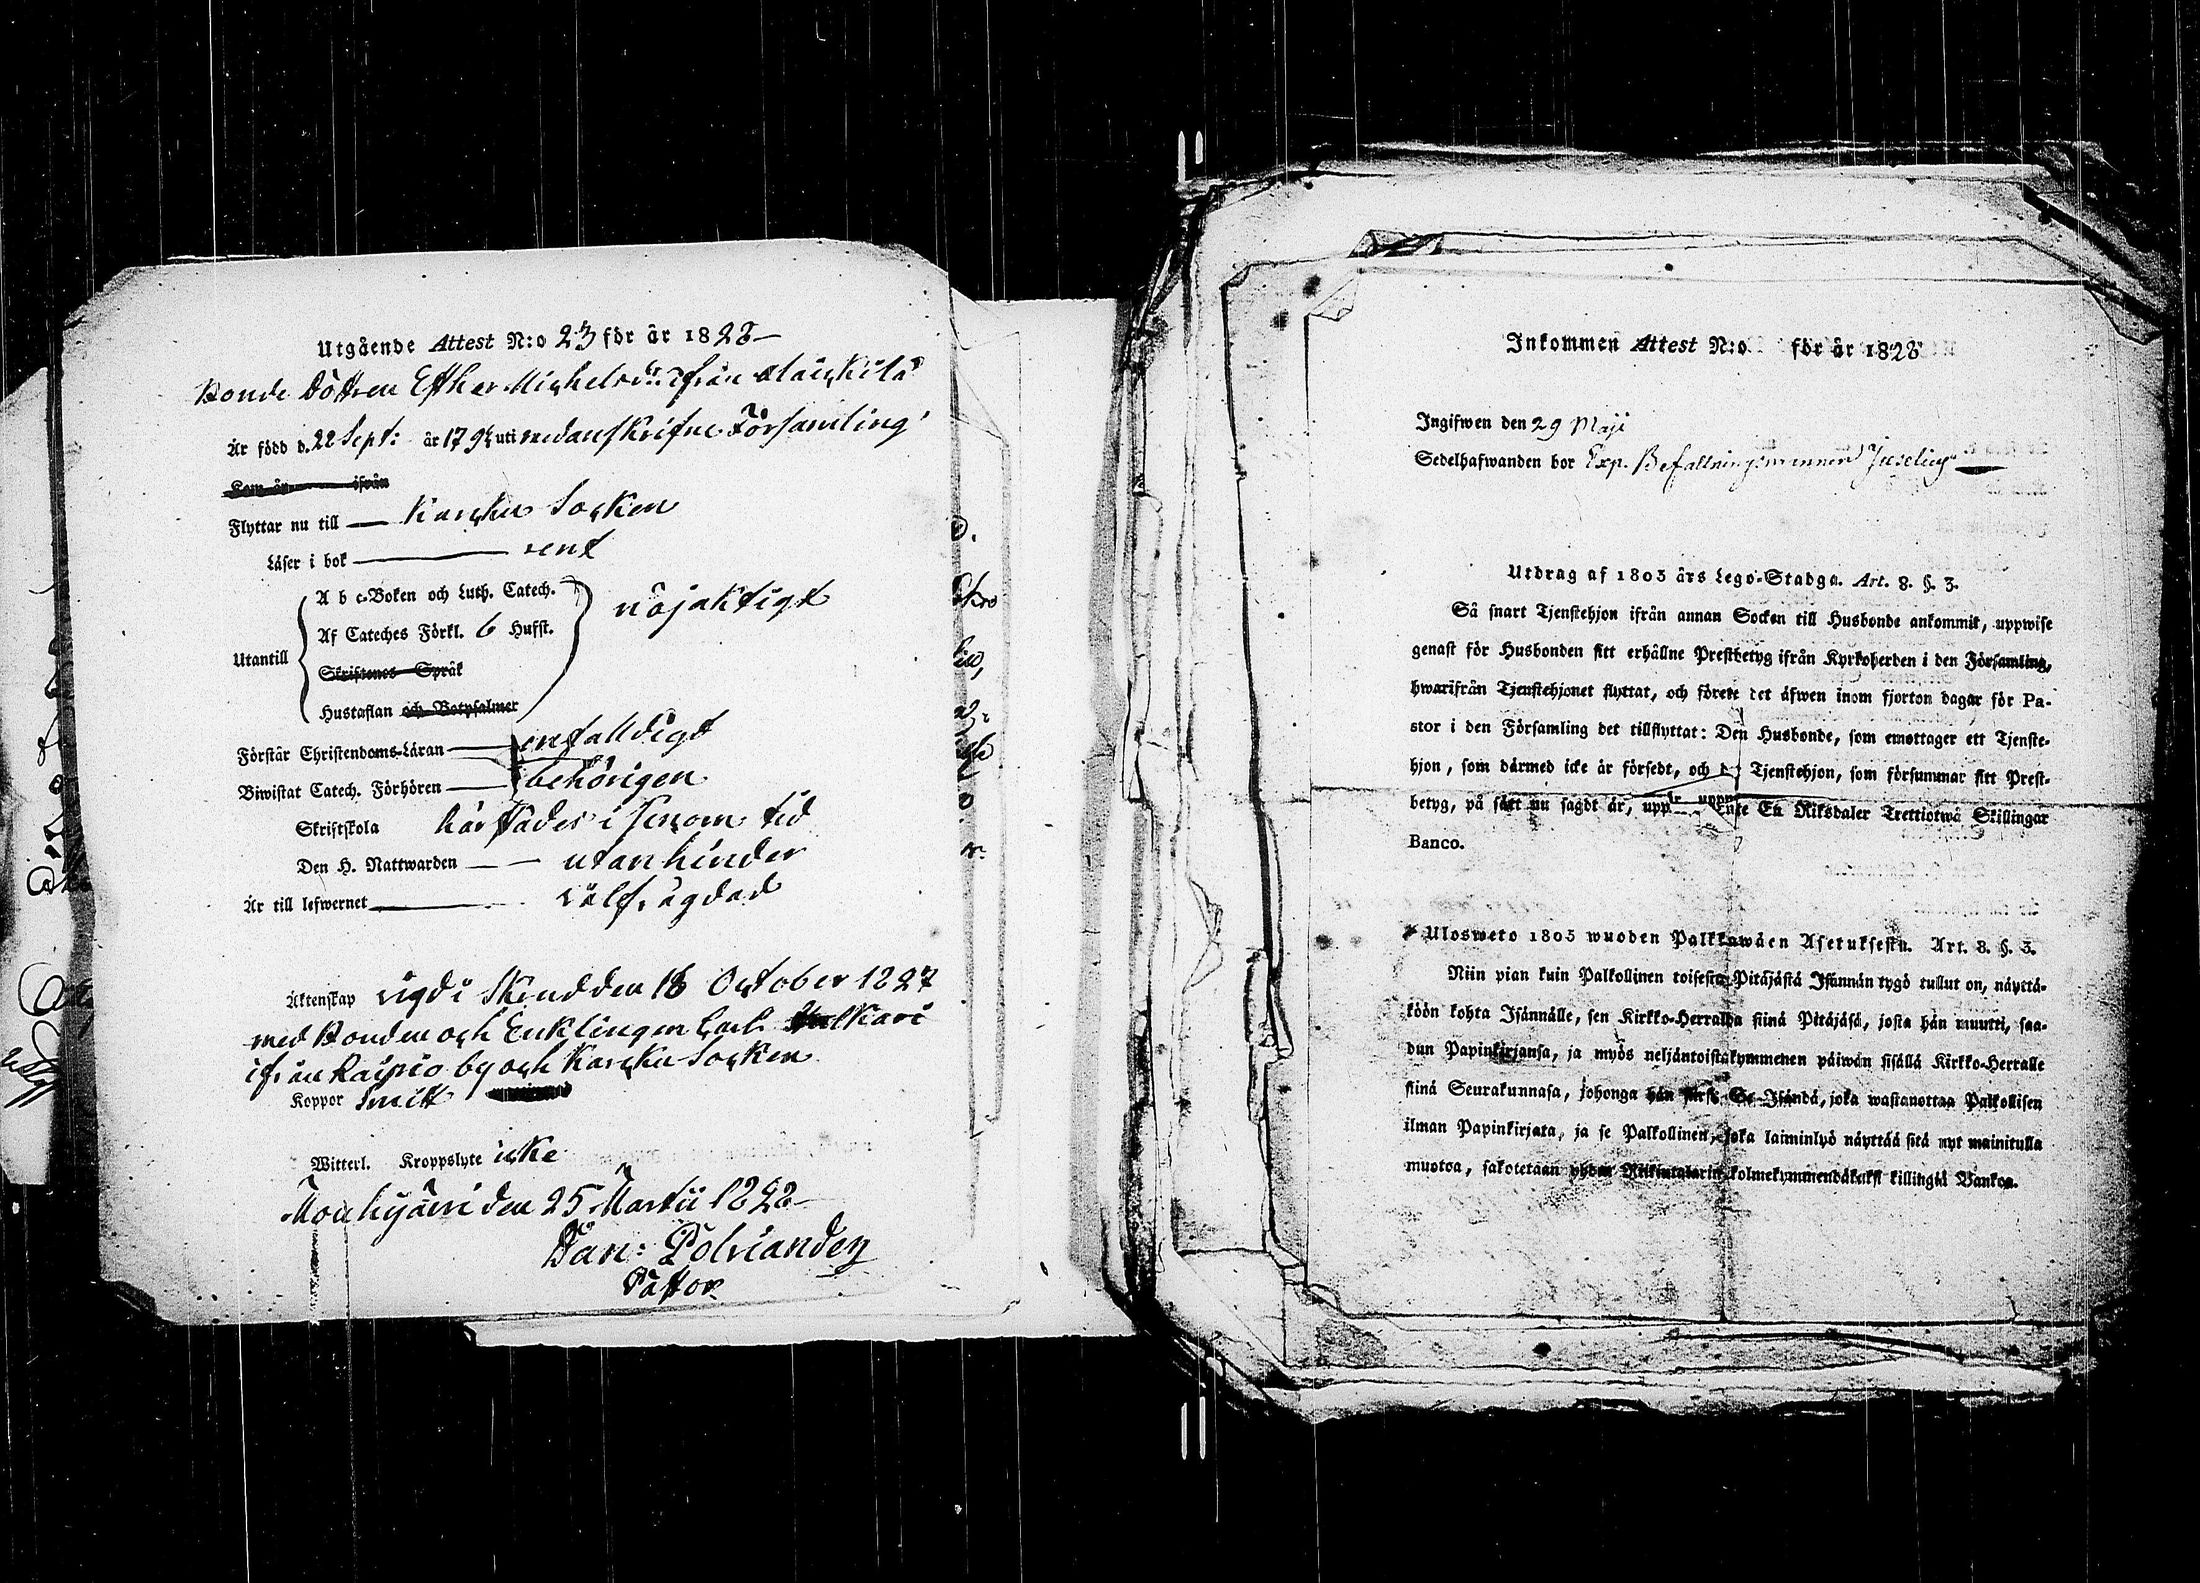 Utgående Attest N:o 23 för år 1828
Bonde Dottren Esther Michelsdr: ifrån
Är född d. 22 Sept: år 179 uti nedanskrifne Församling
Kom år ifrån
Flyttar nu till Karcku Socken
Läser i bok rent
A b c-Boken och Luth. Catech. nöjaktigt
Af Cateches Förkl. 6 Hufst.
Utantill
Skriftenes Språk
Hustaflan och Botpsalmer
Förstår Christendoms-Läran enfalldigt
Biwistat Catech. Förhören behörigen
Skriftskola härstädes i sinom tid
Den H. Nattwarden utan hinder
Är till lefwernet välfrägdad
Äktenskap vigd i Stånd den 18 October 1827
med Bonden och Enklingen Carl
ifrån Raipio by och Karcku Socken
Koppor Smitt
Witterl. Kroppslyte icke
Mouhijärvi den 25 Martii 1828
Dan: Polviander
Pastor
Inkommen Attest N:o för år 1828
Ingifwen den 29 Maji
Sedelhafwanden bor Exp. Befallningsmannen Juselius
Utdrag af 1805 års Lego-Stadga. Art. 8. §. 3.
Så snart Tjenstehjon ifrån annan Socken till Husbonde ankommit, uppwise
genast för Husbonden sitt erhållne Prestbetyg ifrån Kyrkoherden i den Församling,
hwarifrån Tjenstehjonet flyttat, och förete det äfwen inom fjorton dagar för Pa-
stor i den Församling det tillflyttat: Den Husbonde, som emottager ett Tjenste-
hjon, som därmed icke är försedt, och Tjenstehjon, som försummar sitt Prest-
betyg, på sätt nu sagdt är, En Riksdaler Trettiotwå Skillingar
Banco.
Ulosweto 1805 wuoden Palkkawäen Asetuksesta. Art. 8. §. 3.
Niin pian kuin Palkollinen toisesta Pitäjästä Isännän tygö tullut on, näyttä-
köön kohta Isännälle, sen Kirkko-Herralda siinä Pitäjäsä, josta hän muutti, saa-
dun Papinkirjansa, ja myös neljäntoistakymmenen päiwän sisällä Kirkko-Herralle
siinä Seurakunnasa, johonga hän Se Isändä, joka wastanottaa Palkollisen
ilman Papinkirjata, ja se Palkollinen, joka laiminlyö näyttää sitä nyt mainitulla
muotoa, sakotetaan yhden Riikintalarin kolmekymmendäkaksi killingiä Bankoa.